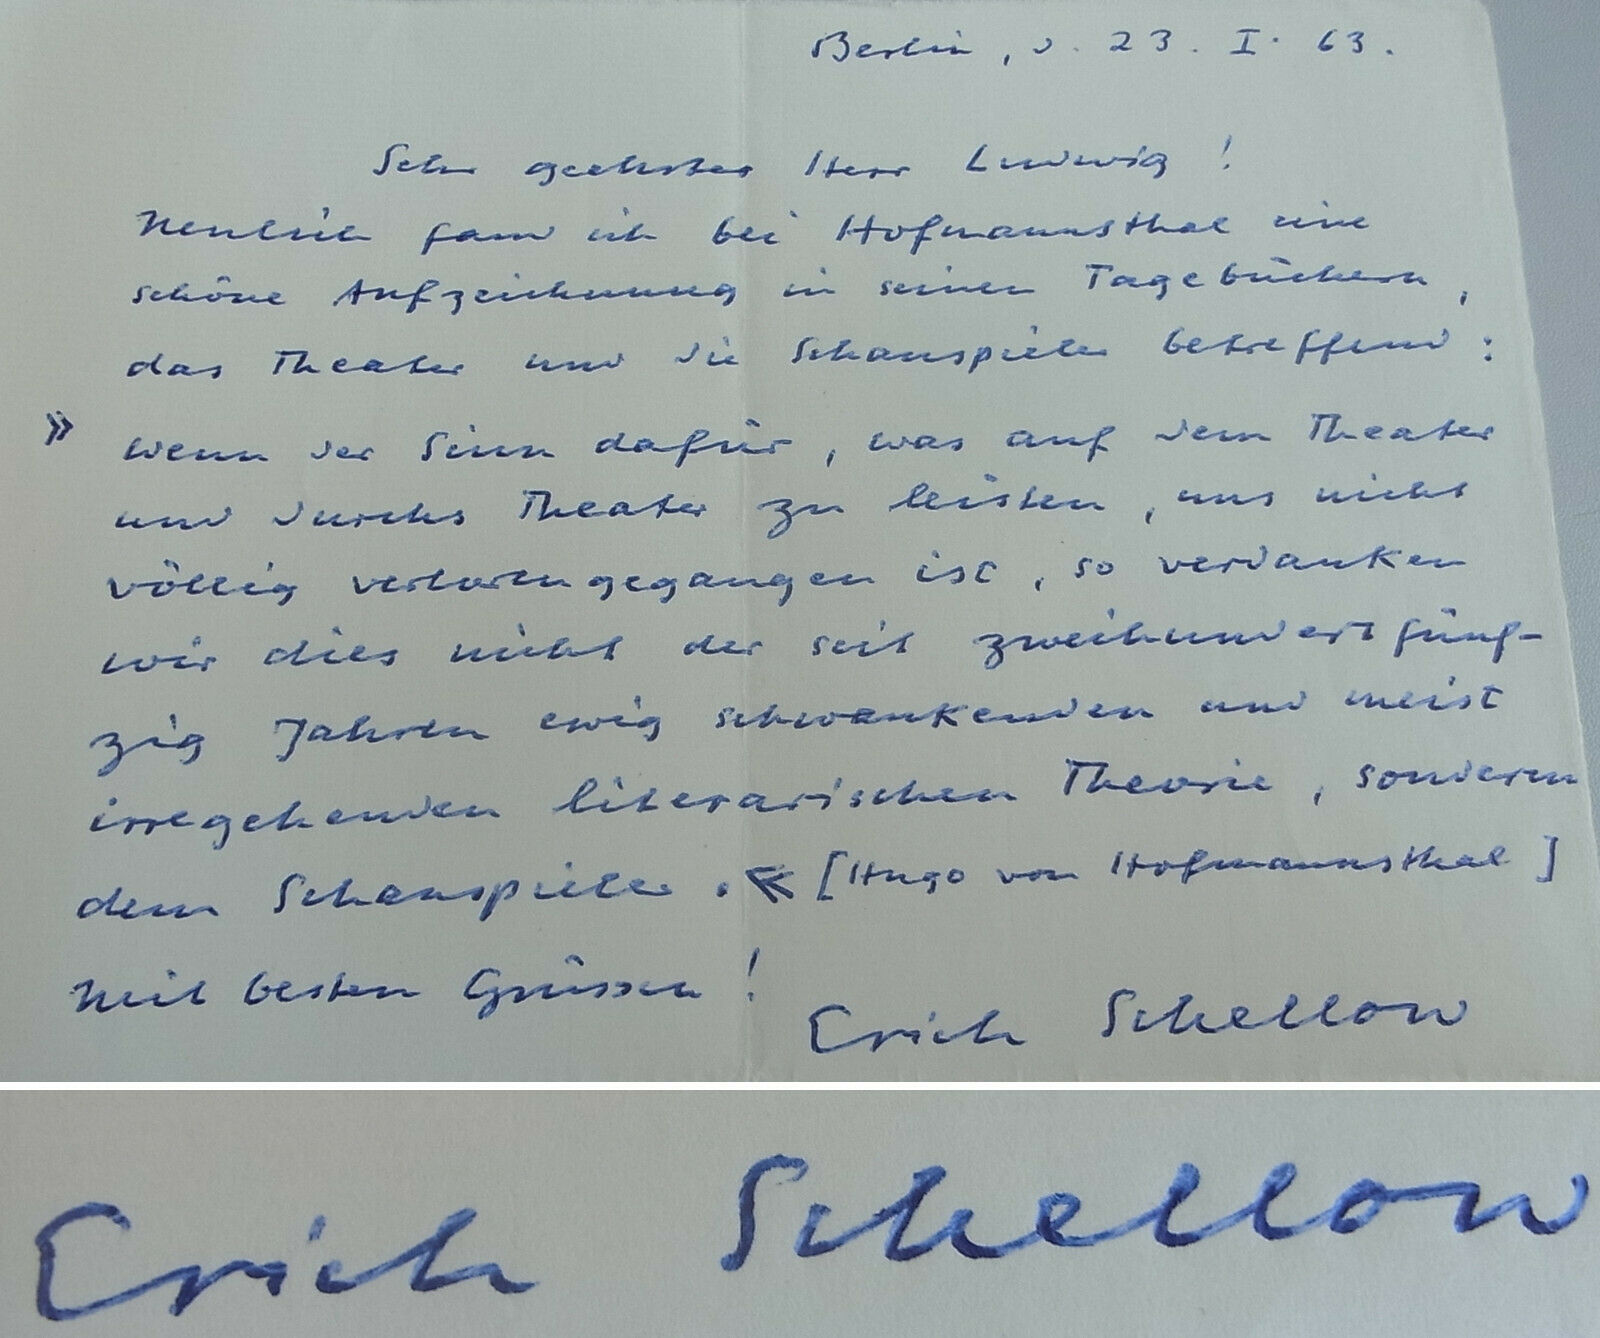 Berlin, d. 23. I. 63.
Sehr geehrter Herr Ludwig!
Neulich fand ich bei Hofmannsthal eine
schöne Aufzeichnung in seinen Tagebüchern,
das Theater und die Schauspieler betreffend:
» wenn der Sinn dafür, was auf dem Theater
und durchs Theater zu leisten, uns nicht
völlig verlorengegangen ist, so verdanken
wir dies nicht der seit zweihundertfünf-
zig Jahren ewig schwankenden und meist
irregehenden literarischen Theorie, sondern
dem Schauspieler. « [Hugo von Hofmannsthal]
Mit besten Grüssen!
Erich Schellow
Erich Schellow